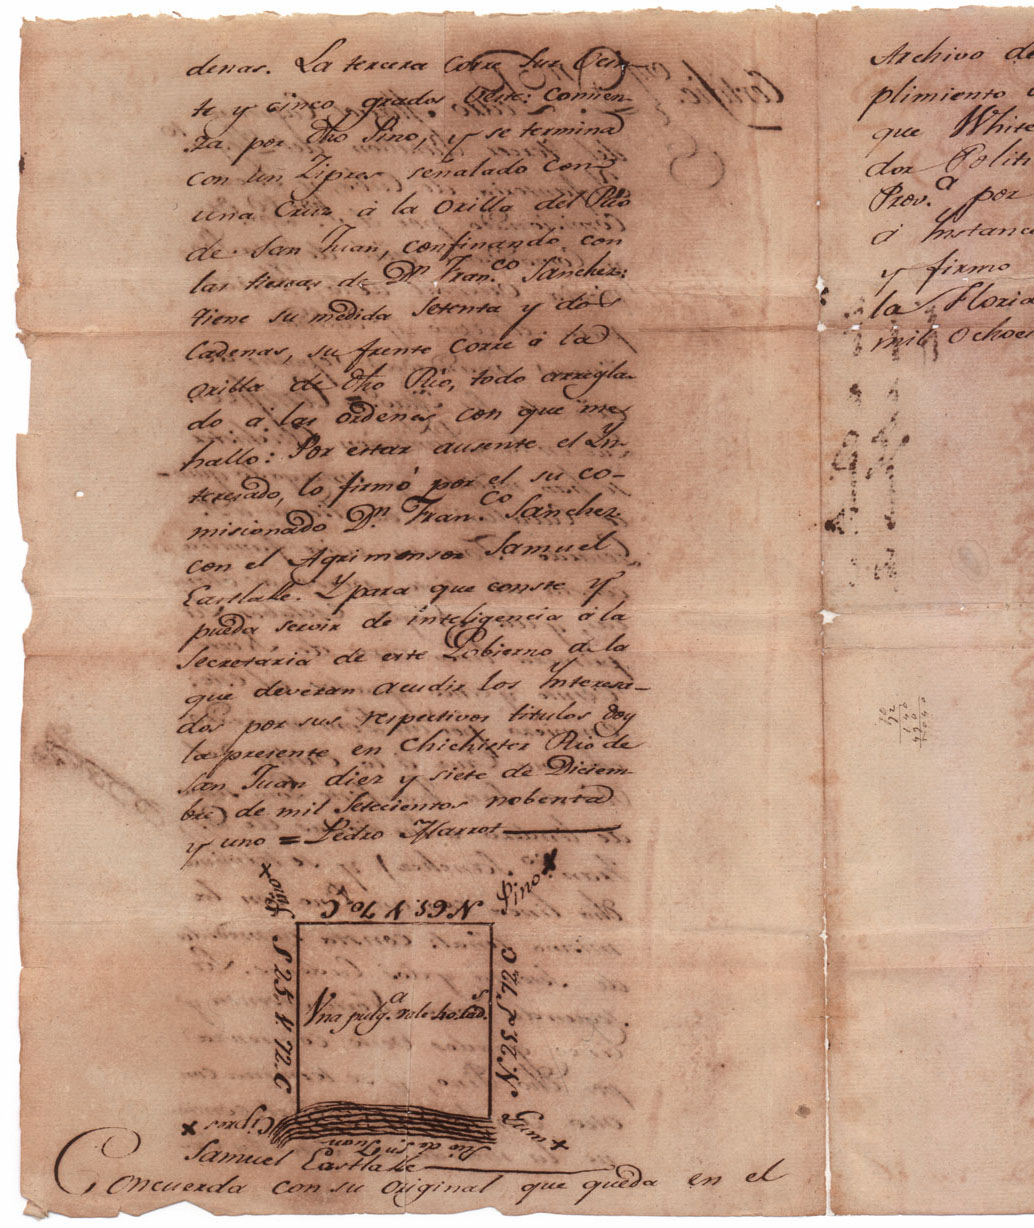 denas. La tercera Corre Sur Vein-
te y cinco grados Oeste: comien-
za por dho Pino, y se termina
con un Zipres señalado Con
una Cruz à la Orilla del Rio
de San Juan, confinando con
las tierras de Dn Franco Sanchez:
tiene su medida Setenta y dos
Cadenas, su frente Corre à la
Orilla de dho Rio, todo arregla-
do à las ordenes con que me
hallo: Por estar ausente el Yn-
teresado, lo firmó por el su co-
misionado Dn Franco Sanchez
con el Agrimensor Samuel
Eastlake. Y para que conste y
pueda servir de inteligencia à la
Secretaria de este Gobierno de la
que deveran acudir los Ynteresa-
dos por sus respectivos titulos doy
la presente en Chichister Rio de
San Juan diez y siete de Diciem-
bre de mil Setecientos nobenta
y uno = Pedro Marrot
Pino
Pino
N 65 V 70 C
S 25. V. 72. C
Una pulga vale 40. Cads
N. 25. L 72. C
Cipres
Gum
Rio de Sn Juan
Samuel Eastlake
Concuerda con su original que queda en el
Archivo de
plimiento
que White
dor Politi
Prova por
à Instanc
y firmo
la Florid
mil Ochoc